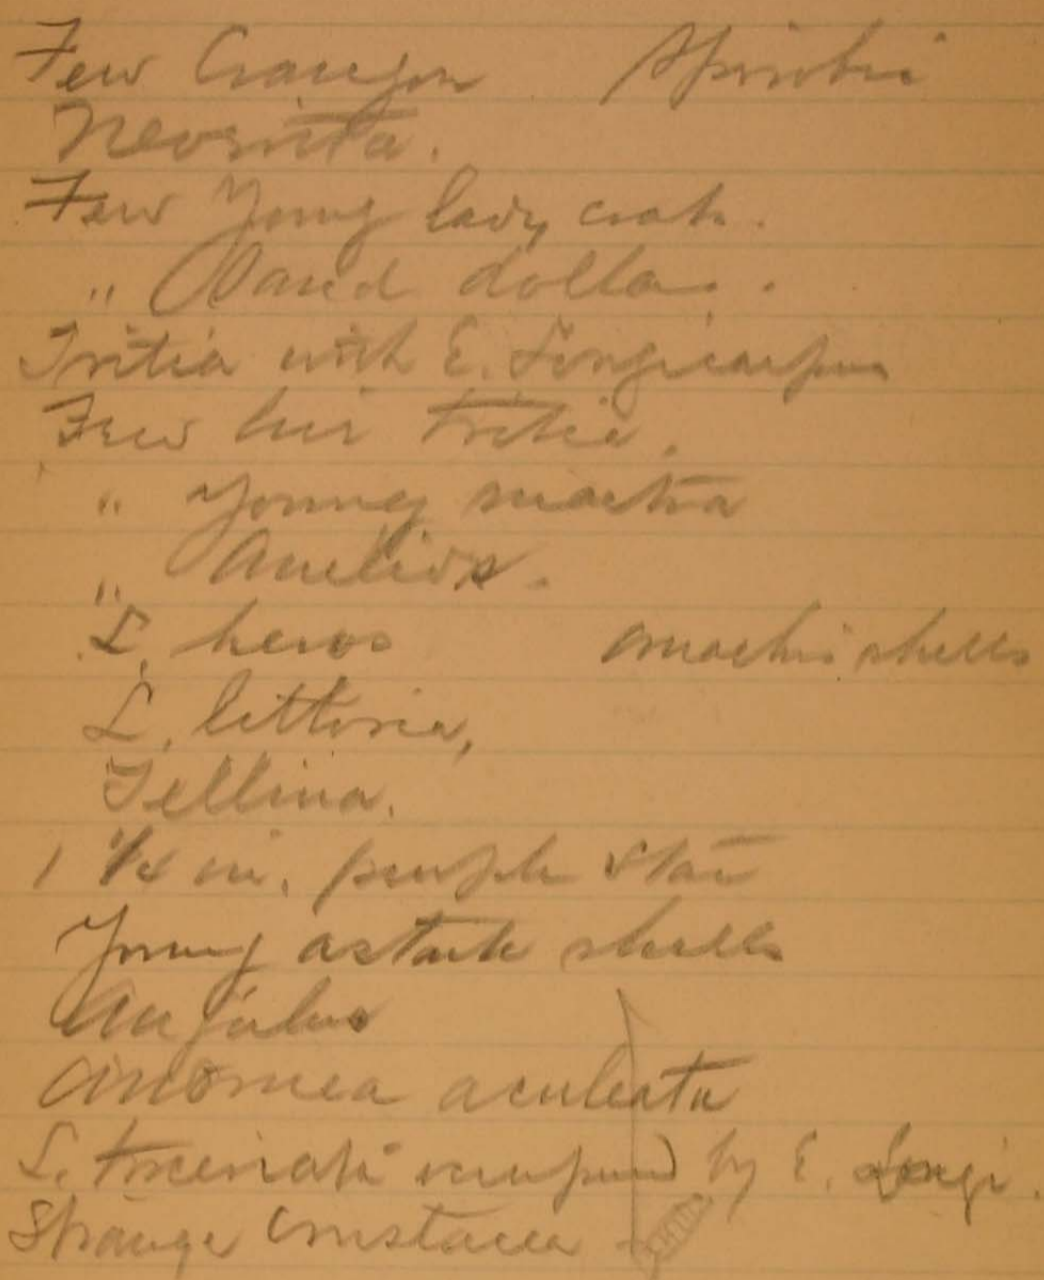 Few Crangon Spirorbis
Neverita.
Few Young lady crabs.
" Sand dollars.
Tritia with E. Longicarpus
Few live Tritia.
" Young mactra
"
L. heros anachis shells
L. littorea,
Tellina.
1 1/4 in. purple star
Young astarte shells
Anomia aculeata
L. trivittata occupied by E. Longi.
Strange Crustacea